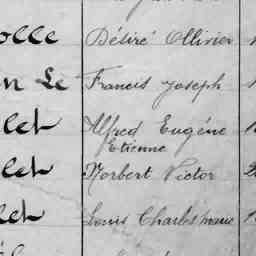 olle Désiré Ollivier
n Le Francis Joseph
let Alfred Eugène
Etienne
let Norbert Victor
let Louis Charlesmane